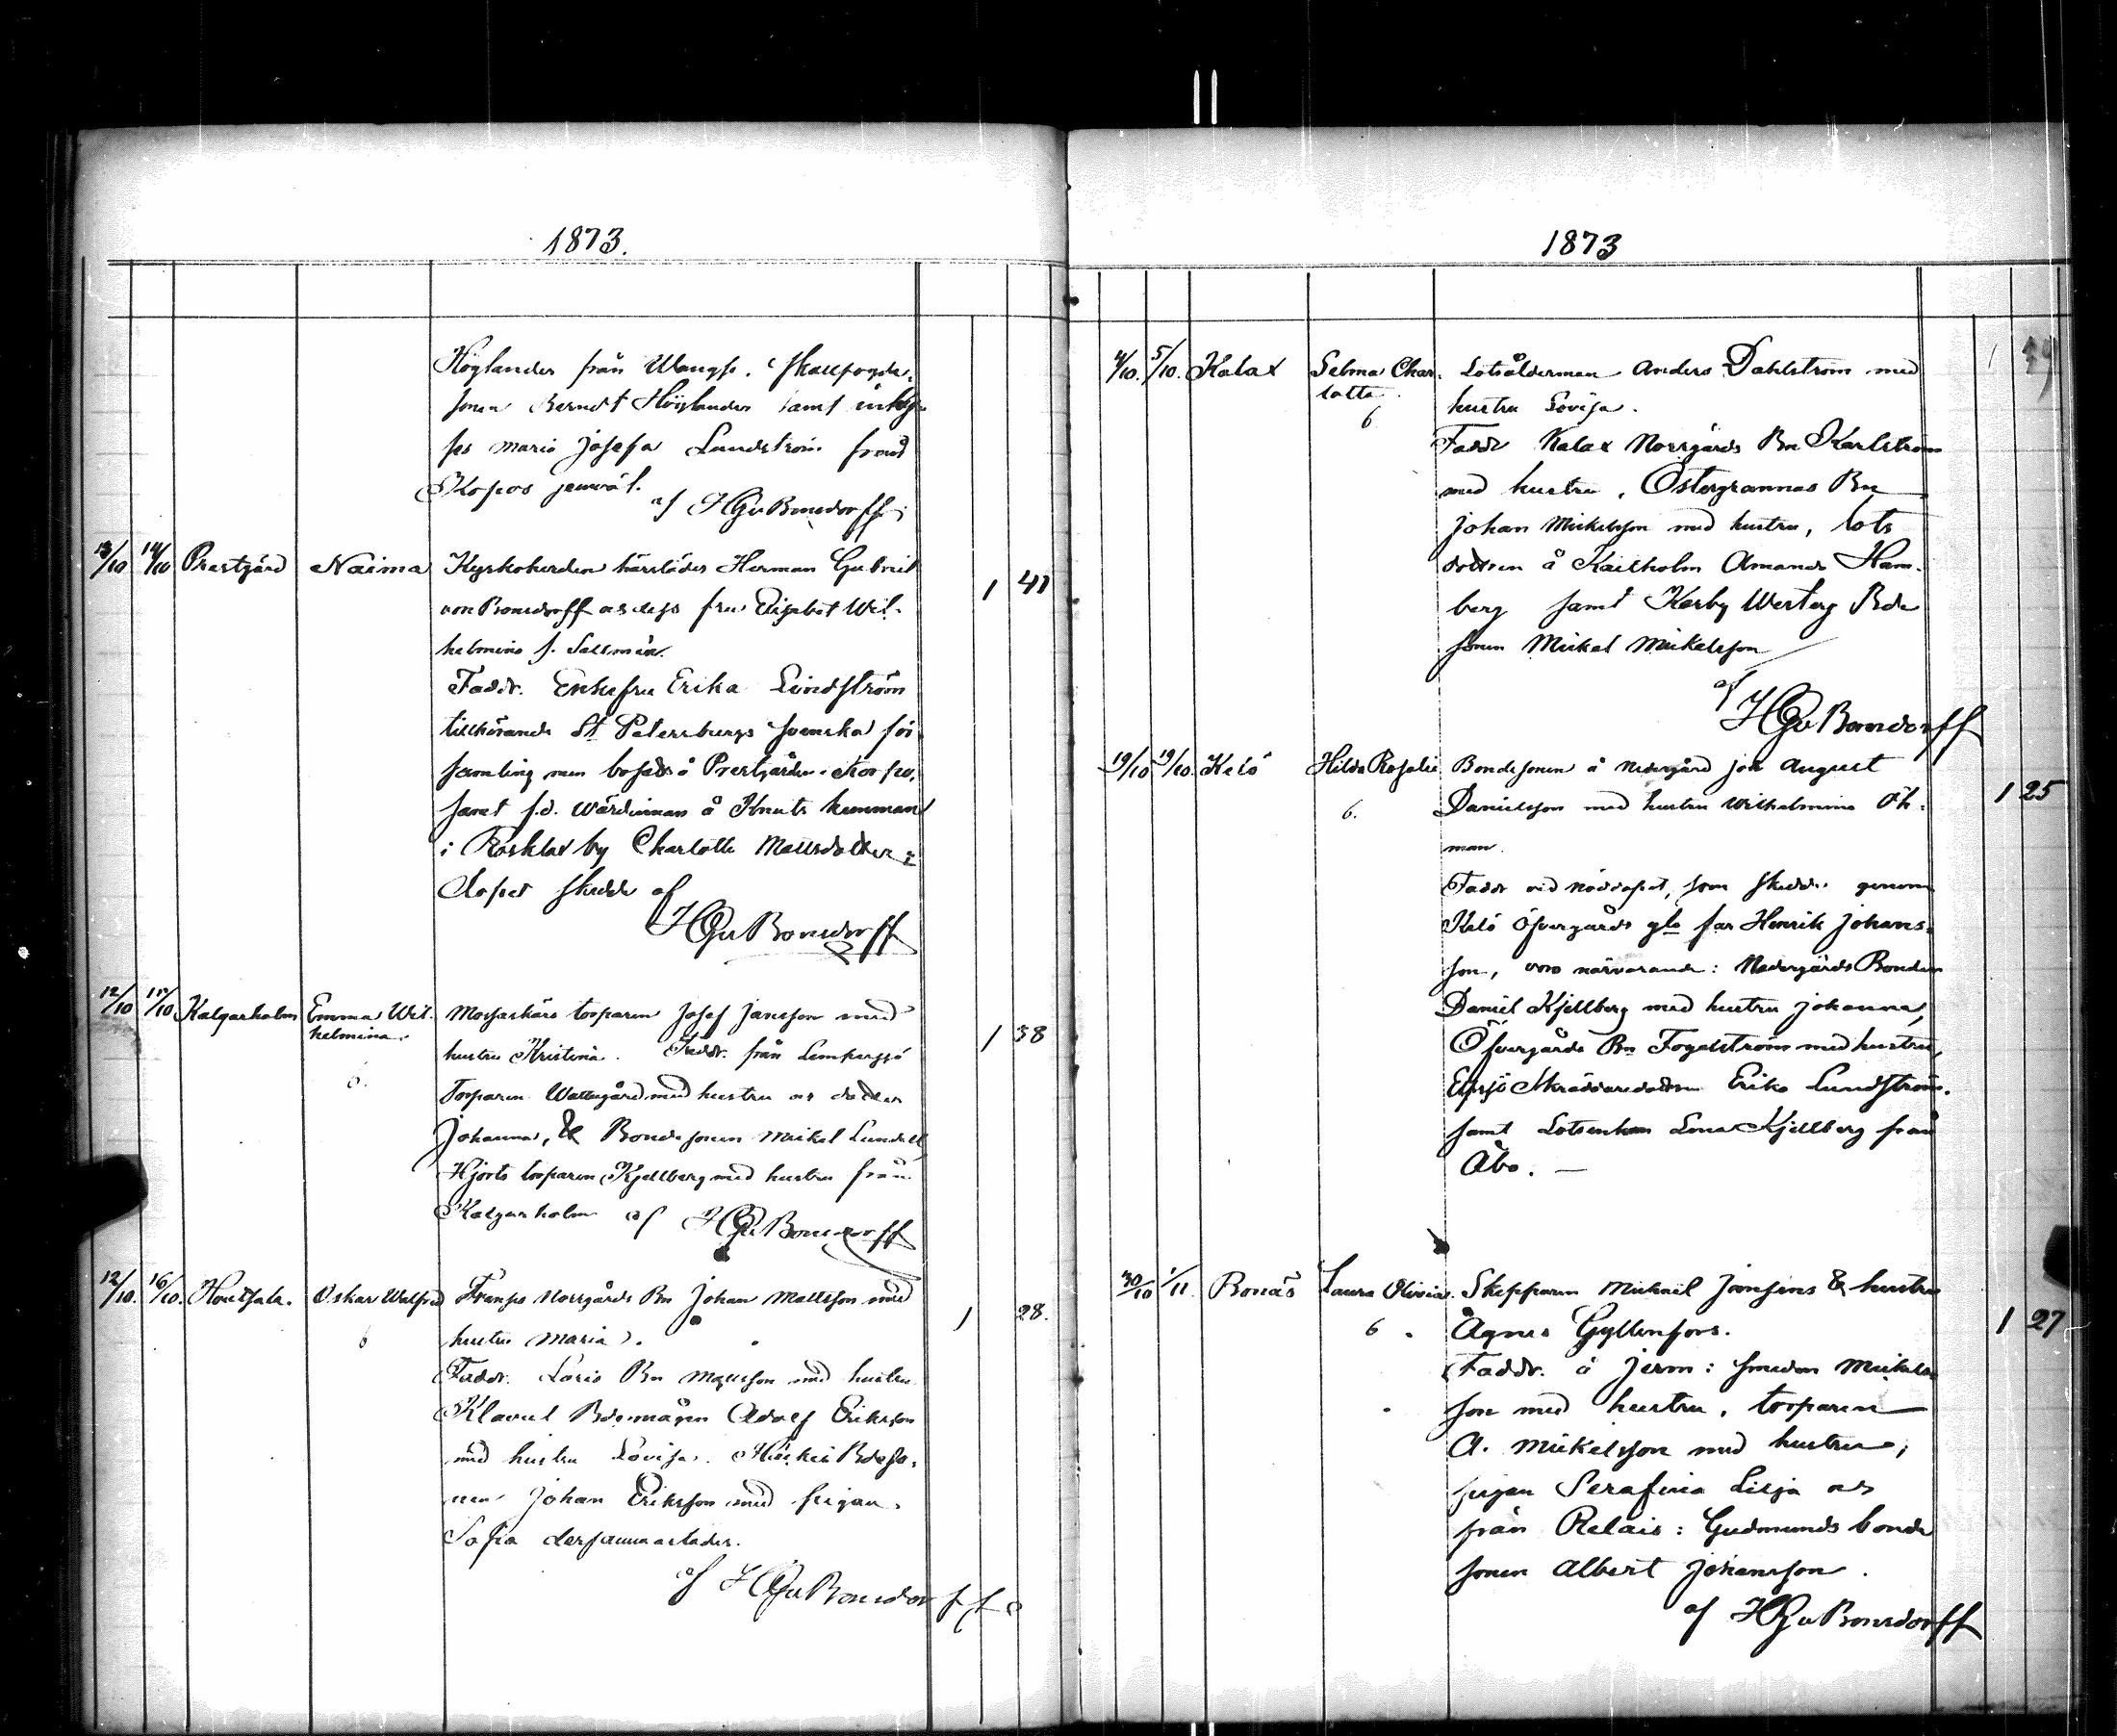 1873.
Höglander från Wangs. Skallfogde-
sonen Berndt Höglander samt inhys
Maria Josefa Lundström från
Korpos
af HGvBonsdorff
13/10 14/10 Prestgård Naima Kyrkoherden härstädes Herman Gabriel 1 41
von Bonsdorff o dess fru Elisabet Wil-
helmina f. Sallmén.
Faddr. Enkefru Erika Lindström
tillhörande St Petersburgs svenska för-
samling men bosatt å Prestgården i Korpo,
samt f.d. wärdinnan å Knuts hemman
i Rosklax by Charlotta Mattsdotter:
Dopet skedde af
HGvBonsdorff
12/10 15/10 Kalgarholm Emma Wil- Mossaskärs torparen Josef Jansson med 1 38
helmina.
6. hustru Kristina. Faddr. från Limpersjö
Torparen Wattugård med hustru o dotter
Johanna, & Bondesonen Mickel Lundell
Hjorts torparen Kjellberg med hustru från
Kalgarholm af HGvBonsdorff
12/10. 16/10. Houtsala. Oskar Walfred Fransis Norrgårds Bn Johan Mattsson med 1 28.
6 hustru Maria.
Faddr. Loris Bn Mattsson med hustru
Klavus Bdemågen Adolf Eriksson
med hustru Lovisa. Bdeso-
nen Johan Eriksson med pigan
Sofia dersammastädes.
af HGvBonsdorff
1873
4/10. 5/10. Kalax Selma Char- Lotsålderman Anders Dahlström med 1
lotta. hustru Lovisa.
6 Faddr Kalax Norrgårds Bn Karlström
med hustru, Östergrannas Bn
Johan Mickelsson med hustru, lots
dottren å Kaitholm Amanda Ham-
berg samt Korsby Westerg Bde
sonen Mickel Mickelsson
af
HGvBonsdorff
19/10 19/10. Kelö Hilda Rosalie Bondesonen å Nedergård Joh August 1 25
6. Danielsson med hustru Wilhelmina Öh-
man.
Faddr vid nöddopet, som skedde genom
Kelö Öfvergårds gla far Henrik Johans-
son, voro närvarande: Nedergårds Bonden
Daniel Kjellberg med hustru Johanna,
Öfvergårds Bn Fogelström med hustru,
Skräddaredottren Erika Lundström.
samt Lotsenkan Lena Kjellberg från
Åbo. —
30/10 1/11. Bonäs Laura Olivia. Skepparen Mickael Jansons & hustru 1 27
6 Agnes Gyllenfors.
Faddr. å Jerm: smeden Mickels-
son med hustru, torparen
A. Mickelsson med hustru,
pigan Serafina Lilja o
från Relais: Gudmunds bonde
sonen Albert Johansson.
af HGvBonsdorff